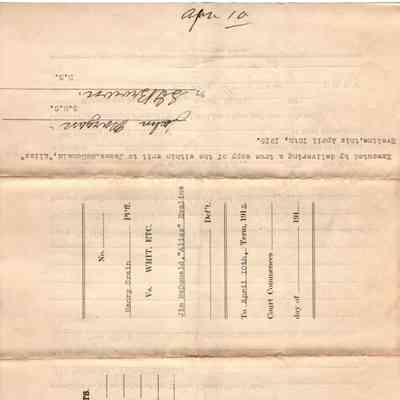 Apr 10
Executed by delivering a true copy of the within writ to James McDonald, "Alias"
this April 10th, 1915.
John Morgan
D.S.
No.
Plff.
Vs. WRIT, ETC.
Jim McDonald, "Alias" Evaline
Def't.
To April 10th, Term, 1915
Court Commences
day of 191